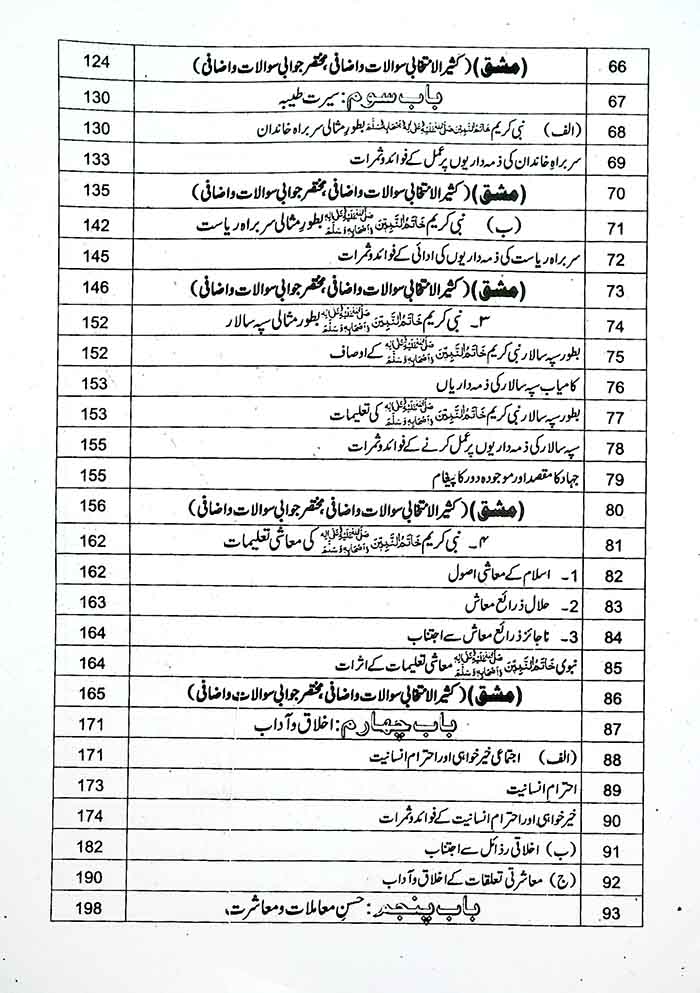 66 (مشق) (کثیر الانتخابی سوالات و اضافی، مختصر جوابی سوالات و اضافی) 124
67 باب سوم: سیرت طیبہ 130
68 (الف) نبی کریم خَاتَمُ النَّبِیّٖن صَلَّی اللہُ عَلَیْہِ وَعَلٰی آلِہٖ وَاَصْحَابِہٖ وَسَلَّم بطورِ مثالی سربراہ خاندان 130
69 سربراہِ خاندان کی ذمہ داریوں پر عمل کے فوائد و ثمرات 133
70 (مشق) (کثیر الانتخابی سوالات و اضافی، مختصر جوابی سوالات و اضافی) 135
71 (ب) نبی کریم خَاتَمُ النَّبِیّٖن صَلَّی اللہُ عَلَیْہِ وَعَلٰی آلِہٖ وَاَصْحَابِہٖ وَسَلَّم بطورِ مثالی سربراہ ریاست 142
72 سربراہ ریاست کی ذمہ داریوں کی ادائی کے فوائد و ثمرات 145
73 (مشق) (کثیر الانتخابی سوالات و اضافی، مختصر جوابی سوالات و اضافی) 146
74 ۳۔ نبی کریم خَاتَمُ النَّبِیّٖن صَلَّی اللہُ عَلَیْہِ وَعَلٰی آلِہٖ وَاَصْحَابِہٖ وَسَلَّم بطور مثالی سپہ سالار 152
75 بطور سپہ سالار نبی کریم خَاتَمُ النَّبِیّٖن صَلَّی اللہُ عَلَیْہِ وَعَلٰی آلِہٖ وَاَصْحَابِہٖ وَسَلَّم کے اوصاف 152
76 کامیاب سپہ سالار کی ذمہ داریاں 153
77 بطور سپہ سالار نبی کریم خَاتَمُ النَّبِیّٖن صَلَّی اللہُ عَلَیْہِ وَعَلٰی آلِہٖ وَاَصْحَابِہٖ وَسَلَّم کی تعلیمات 153
78 سپہ سالار کی ذمہ داریوں پر عمل کرنے کے فوائد و ثمرات 155
79 جہاد کا مقصد اور موجودہ دور کا پیغام 155
80 (مشق) (کثیر الانتخابی سوالات و اضافی، مختصر جوابی سوالات و اضافی) 156
81 ۴۔ نبی کریم خَاتَمُ النَّبِیّٖن صَلَّی اللہُ عَلَیْہِ وَعَلٰی آلِہٖ وَاَصْحَابِہٖ وَسَلَّم کی معاشی تعلیمات 162
82 1۔ اسلام کے معاشی اصول 162
83 2۔ حلال ذرائع معاش 163
84 3۔ ناجائز ذرائع معاش سے اجتناب 164
85 نبوی خَاتَمُ النَّبِیّٖن صَلَّی اللہُ عَلَیْہِ وَعَلٰی آلِہٖ وَاَصْحَابِہٖ وَسَلَّم معاشی تعلیمات کے اثرات 164
86 (مشق) (کثیر الانتخابی سوالات و اضافی، مختصر جوابی سوالات و اضافی) 165
87 باب چہارم: اخلاق و آداب 171
88 (الف) اجتماعی خیر خواہی اور احترام انسانیت 171
89 احترام انسانیت 173
90 خیر خواہی اور احترام انسانیت کے فوائد و ثمرات 174
91 (ب) اخلاقی رذائل سے اجتناب 182
92 (ج) معاشرتی تعلقات کے اخلاق و آداب 190
93 باب پنجم: حسنِ معاملات و معاشرت، 198